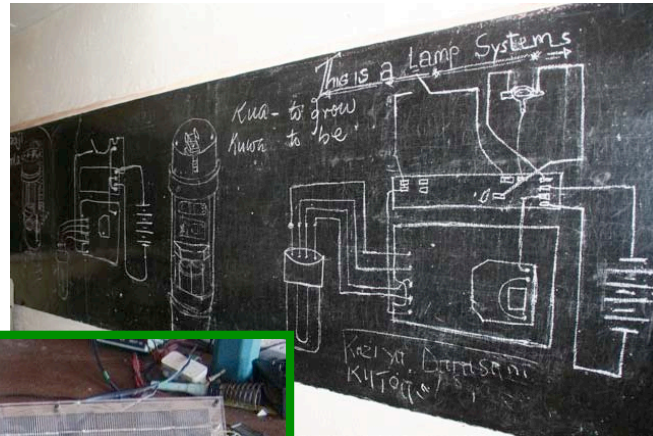 This is a Lamp Systems
Kua - to grow
Kuwa to be
Kazi ya Darasani